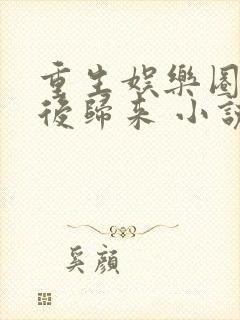 重生娛樂圈
後歸來 小說
奚顏